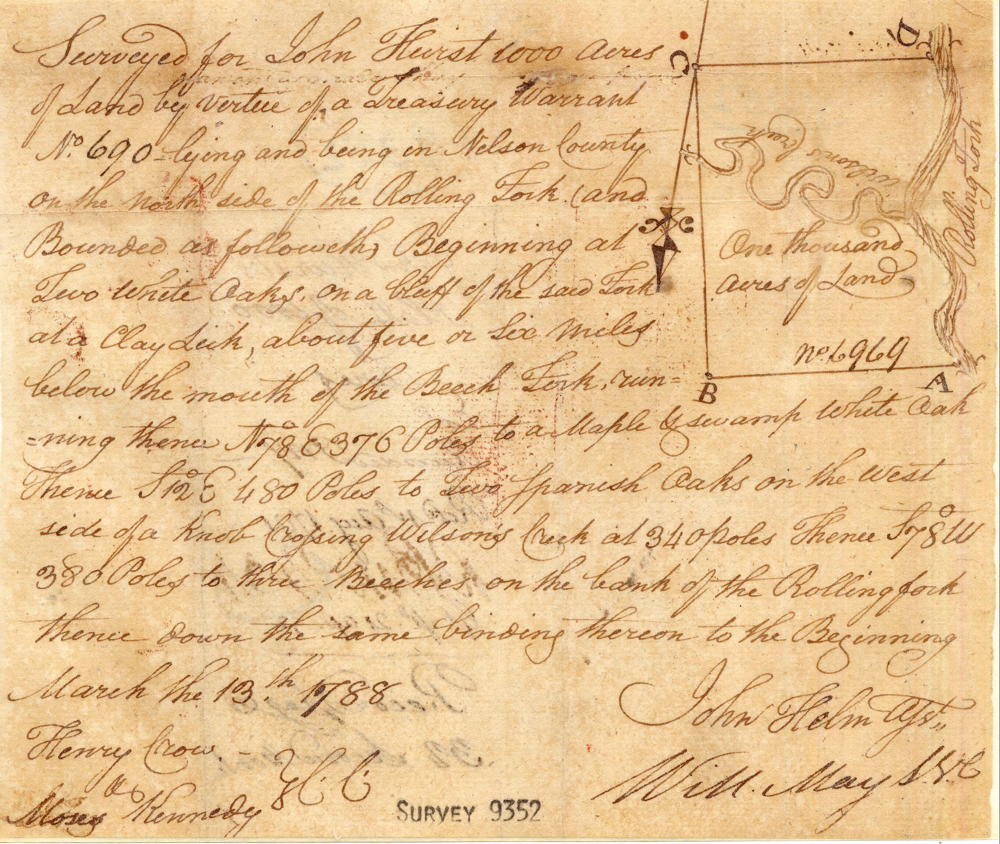 Surveyed for John Hurst 1000 Acres
of Land by virtue of a Treasury Warrant
No. 690 lying and being in Nelson County
on the North side of the Rolling Fork and
Bounded as followeth, Beginning at
Two White Oaks, on a bluff of the said Fork
at a Clay Lick, about five or Six Miles
below the mouth of the Beech Fork, run=
=ning thence N78°E 376 Poles to a Maple & swamp White Oak
Thence S12°E 480 Poles to Two Spanish Oaks on the West
side of a Knob Crossing Wilsons Creek at 340 poles Thence S78°W
380 Poles to three Beeches, on the bank of the Rolling fork
thence down the same binding thereon to the Beginning
March the 13th 1788
John Helm Asst.
Henry Crow
Moses Kennedy
C C
Will. May S.N.C
SURVEY 9352
C
D
Wilsons Creek
Rolling Fork
One thousand
Acres of Land
B
A